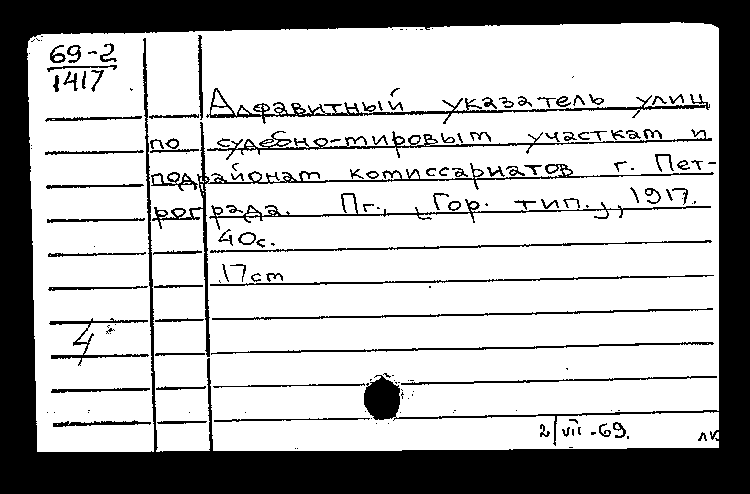 69-2
1417
Алфавитный указатель улиц
по судебно-мировым участкам и
подрайонам комиссариатов г. Пет-
рограда. Пг., [Гор. тип.], 1917.
40с.
17см
4°
2/VII-69.